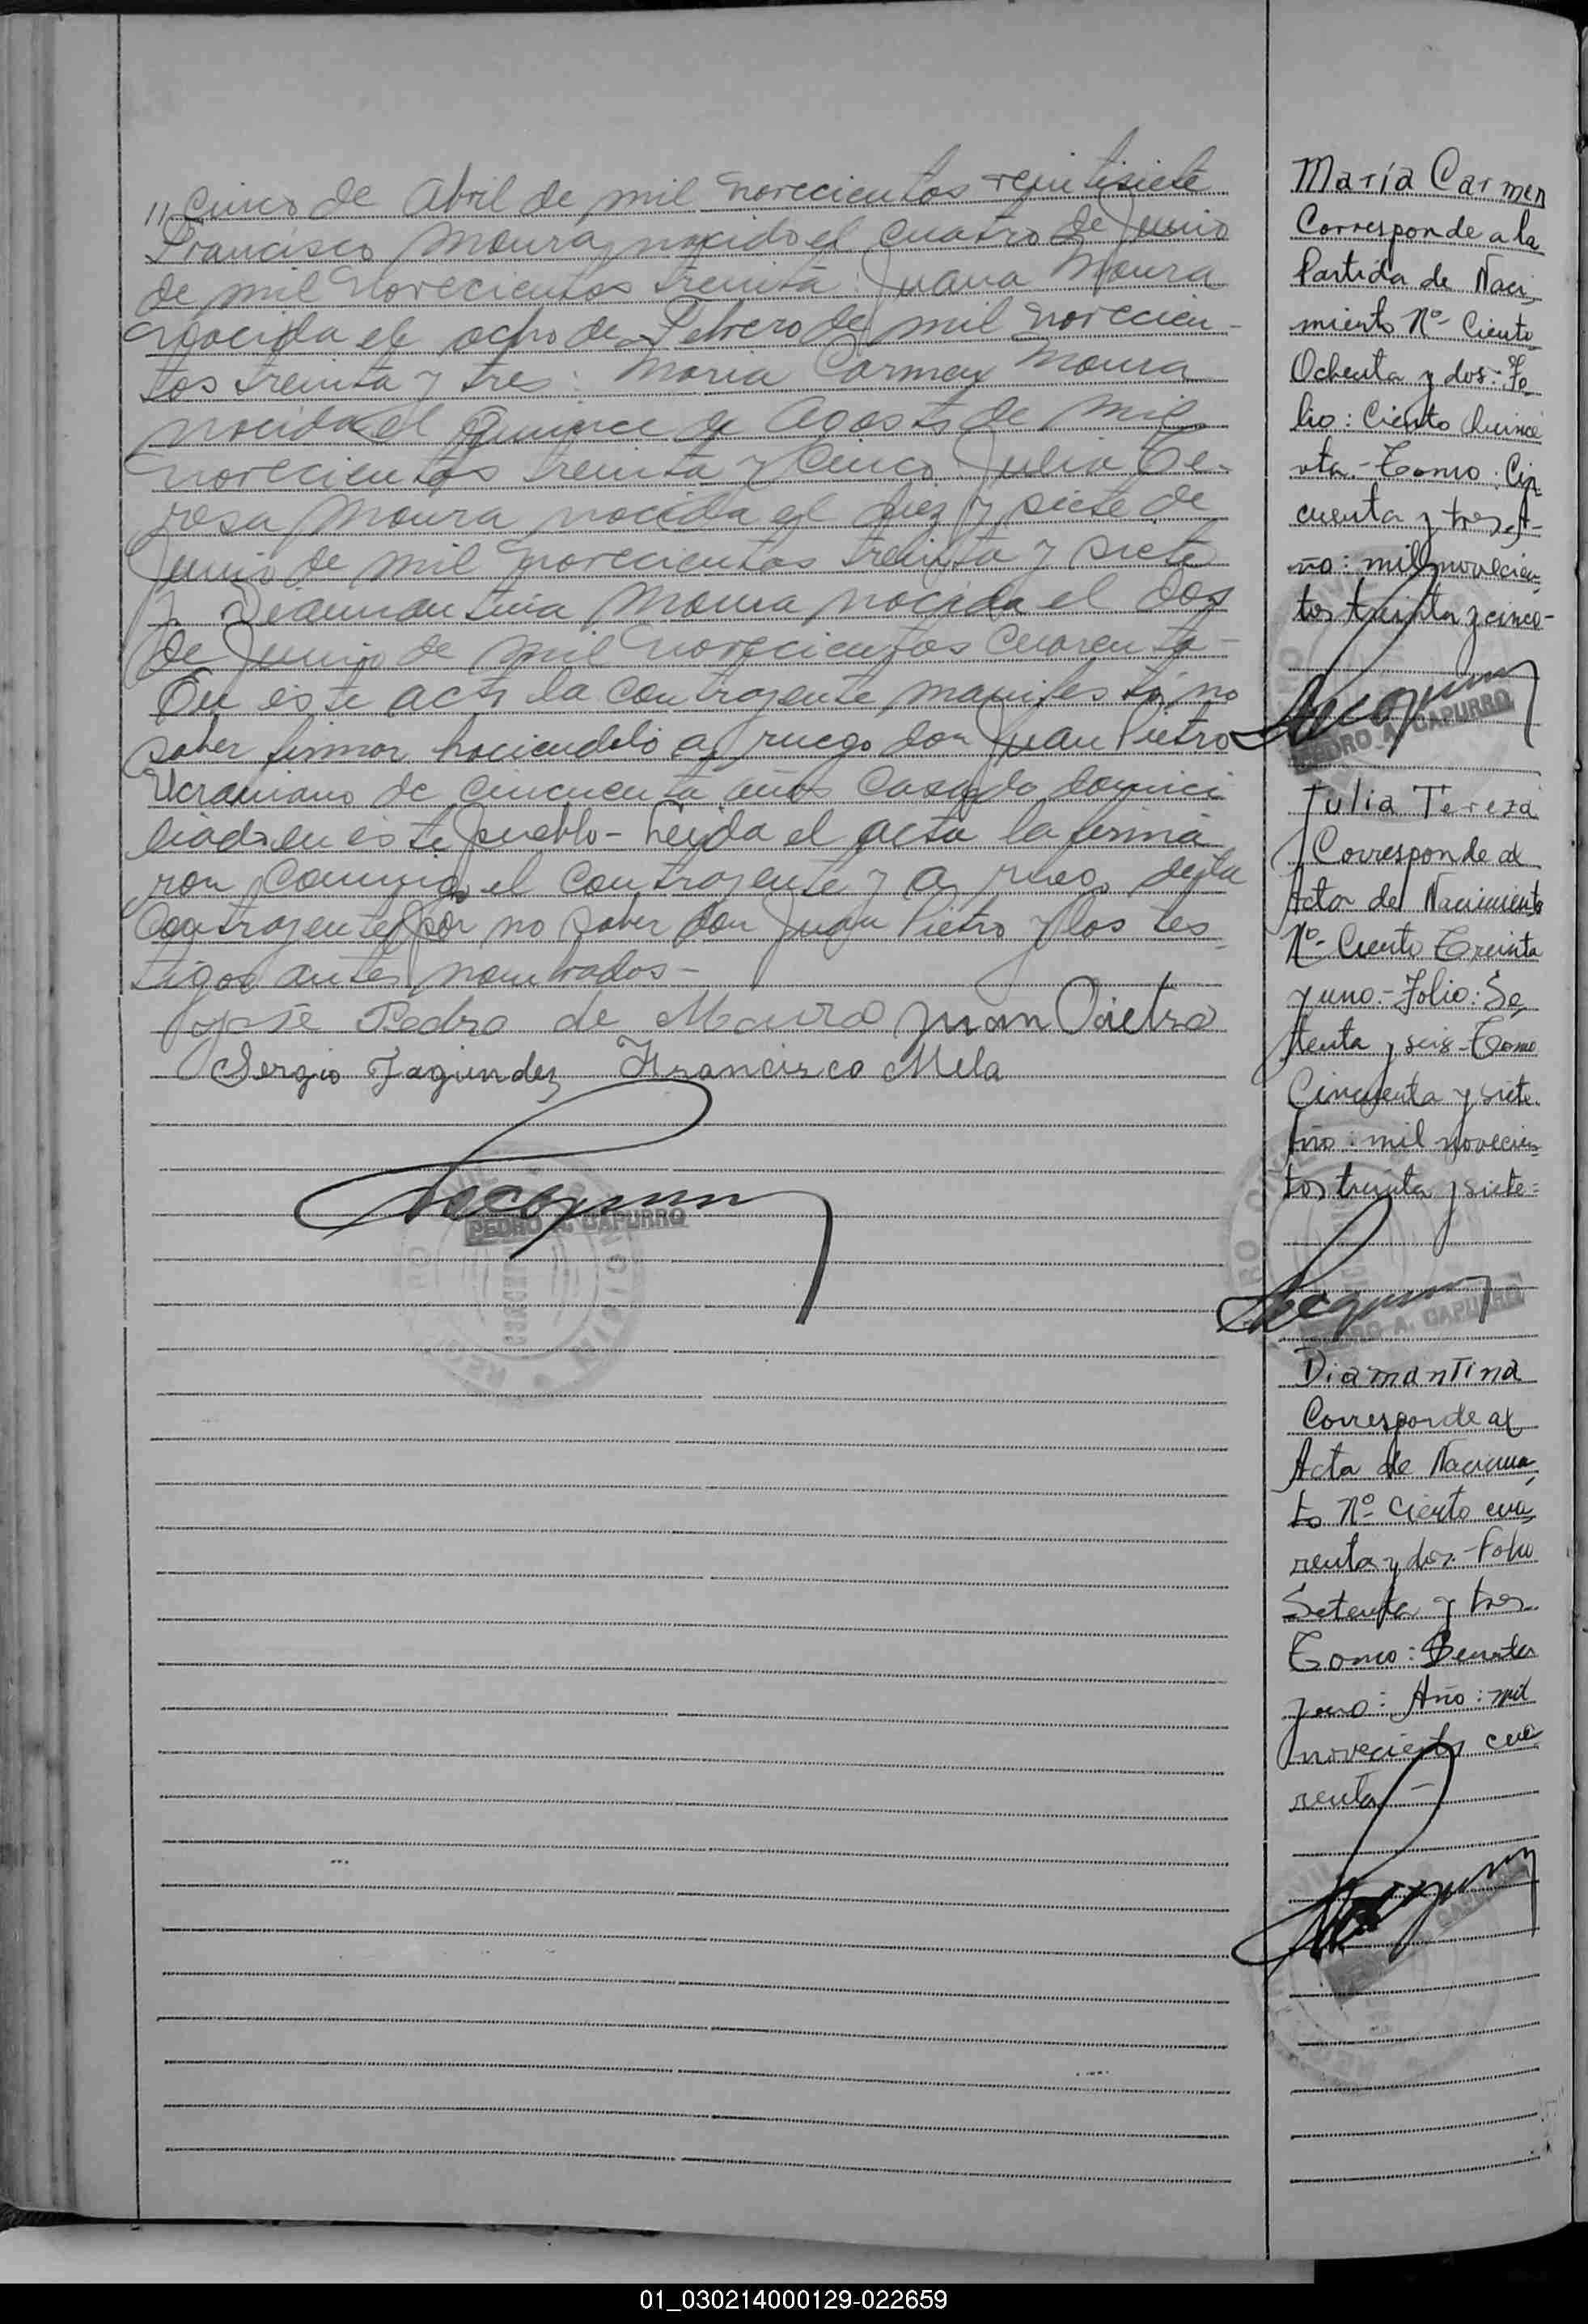 " Cinco de Abril de mil novecientos veintisiete
Francisco Moura, nacido el cuatro de Junio
de mil novecientos treinta: Juana Moura
nacida el ocho de Febrero de mil novecien-
tos treinta y tres: Maria Carmen Moura
nacida el Quince de Agosto de mil
novecientos treinta y Cinco: Julia Te-
resa Moura nacida el diez y siete de
Junio de mil novecientos treinta y siete
y Diamantina Moura nacida el dos
de Junio de mil novecientos cuarenta-
En este acto la contrayente manifestó no
saber firmar haciendolo a ruego don Juan Pietro
Ucraniano de cincuenta años casado domici
liado en este pueblo - Leida el acta la firma
ron conmigo el contrayente y a ruego de la
contrayente por no saber don Juan Pietro y los tes
tigos antes nombrados -
José Pedro de Moura Juan Pietro
Sergio Fagundez Francisco Mela
PEDRO A. CAPURRO
María Carmen
Corresponde a la
Partida de Naci
miento Nº Ciento
Ochenta y dos.- Fo
lio: Ciento Cuince
Tomo: Cin
cuenta y tres. A-
ño: mil novecien
tos treinta y cinco-
PEDRO A. CAPURRO
Julia Tereza
Corresponde al
Acta de Nacimiento
Nº Ciento Treinta
y uno.- Folio: Se
tenta y seis- Tomo
Cincuenta y siete.
Año: mil novecien
tos treinta y siete=
PEDRO A. CAPURRO
Diamantina
Corresponde al
Acta de Nacimien
to Nº Ciento cua
renta y dos.- Folio
Setenta y tres
Tomo: Sesenta
y uno: Año: mil
novecientos cua
renta -
01_030214000129-022659